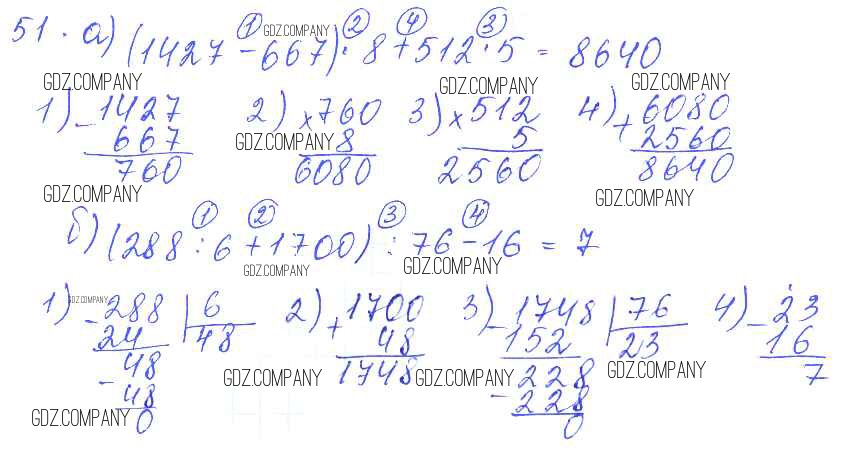 51. а) (1427 - 667) · 8 + 512 · 5 = 8640
① ② ④ ③
GDZ.COMPANY
GDZ.COMPANY GDZ.COMPANY GDZ.COMPANY
1) - 1427 2) × 760 3) × 512 4) + 6080
667 8 5 2560
GDZ.COMPANY
760 6080 2560 8640
GDZ.COMPANY GDZ.COMPANY
① ② ③ ④
б) (288 : 6 + 1700) : 76 - 16 = 7
GDZ.COMPANY GDZ.COMPANY
GDZ.COMPANY
1) - 288 6 2) + 1700 3) - 1748 76 4) - 23
24 48 48 152 23 16
- 48 1748 - 228 7
GDZ.COMPANY GDZ.COMPANY GDZ.COMPANY
48 228
GDZ.COMPANY
0 0